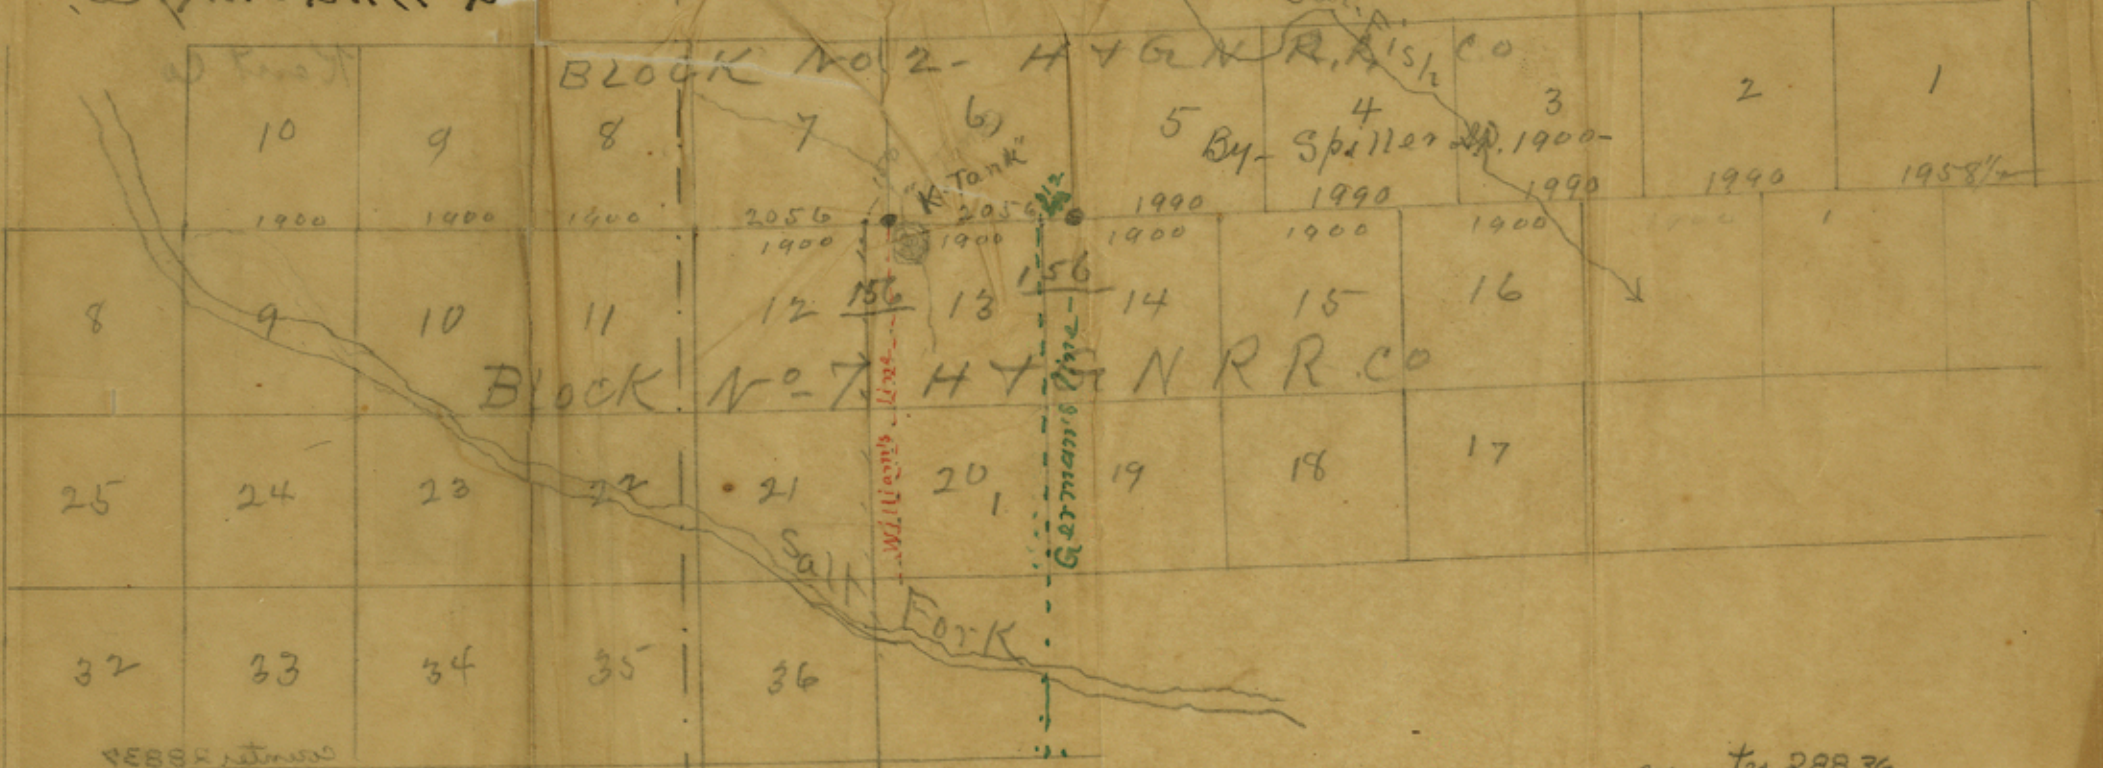 BLOCK No 2- H & G N R.R. Co
10 9 8 7 6 5 4 3 2 1
By- Spiller 1900-
"K-Tank"
1900 1900 1900 2056 2056 1990 1990 1990 1990 1958½
1900 1900 1900 1900 1900
8 9 10 11 12 156 13 156 14 15 16
BLOCK No-7. H & G N R R. Co
Williams Line
Germans Line
25 24 23 22 21 20 19 18 17
Salt Fork
32 33 34 35 36
counter 28837
28836